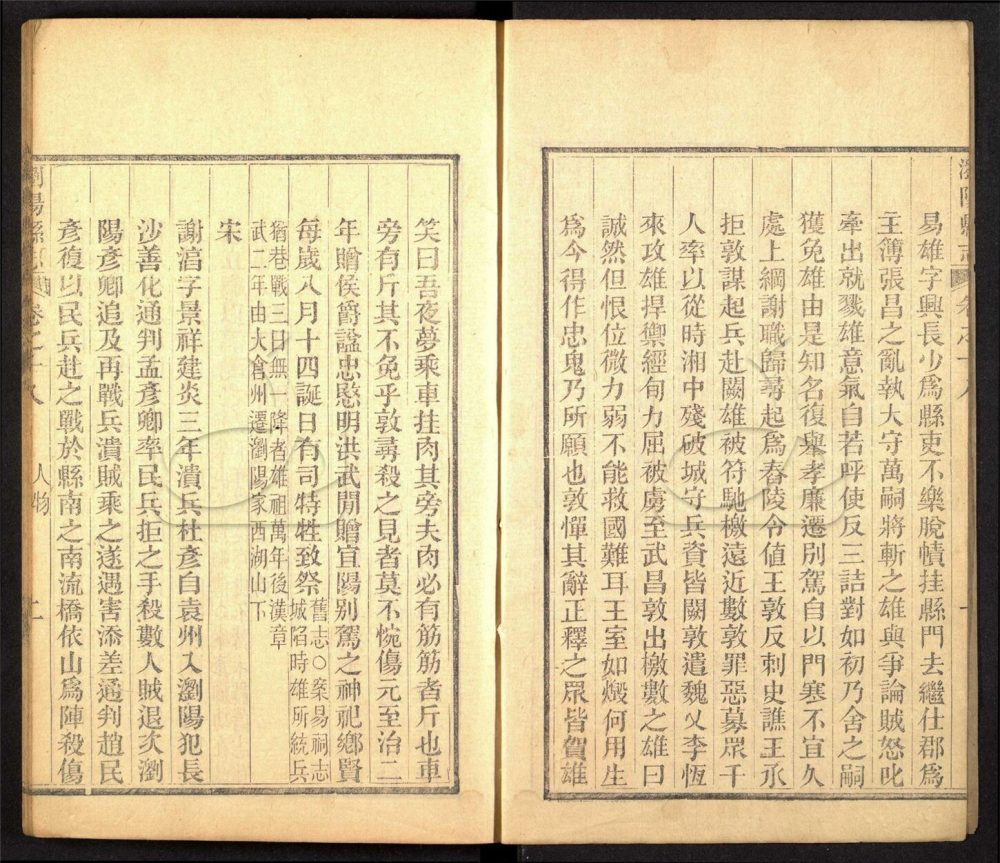 瀏陽縣志 卷之十八
易雄字興長少爲縣吏不樂脫幘挂縣門去繼仕郡爲
主簿張昌之亂執大守萬嗣將斬之雄與爭論賊怒叱
牽出就戮雄意氣自若呼使反三詰對如初乃舍之嗣
獲免雄由是知名復舉孝廉遷別駕自以門寒不宜久
處上綱謝職歸尋起爲舂陵令値王敦反刺史譙王承
拒敦謀起兵赴闕雄被符馳檄遠近數敦罪惡募眾千
人率以從時湘中殘破城守兵資皆闕敦遣魏乂李恆
來攻雄捍禦經旬力屈被虜至武昌敦出檄數之雄曰
誠然但恨位微力弱不能救國難耳王室如燬何用生
爲今得作忠鬼乃所願也敦憚其辭正釋之眾皆賀雄
笑曰吾夜夢乘車挂肉其旁夫肉必有筋筋者斤也車
旁有斤其不免乎敦尋殺之見者莫不惋傷元至治二
年贈侯爵諡忠愍明洪武閒贈宜陽別駕之神祀鄉賢
每歲八月十四誕日有司特牲致祭舊志○案易祠志
城陷時雄所統兵
猶巷戰三日無一降者雄祖萬年後漢章
武二年由大倉州遷瀏陽家西湖山下
宋
謝淯字景祥建炎三年潰兵杜彥自袁州入瀏陽犯長
沙善化通判孟彥卿率民兵拒之手殺數人賊退次瀏
陽彥卿追及再戰兵潰賊乘之遂遇害添差通判趙民
彥復以民兵赴之戰於縣南之南流橋依山爲陣殺傷
瀏陽縣志 卷之十八 人物 二